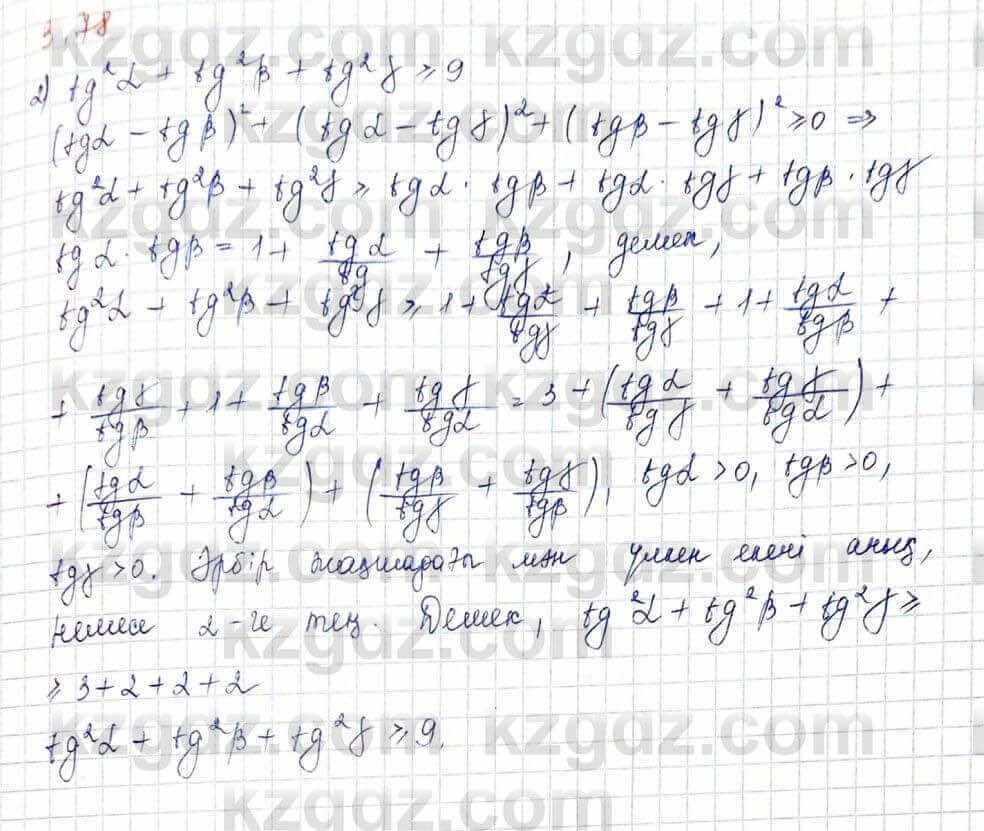 3.78
2) tg²α + tg²β + tg²γ ≥ 9
(tgα − tgβ)² + (tgα − tgγ)² + (tgβ − tgγ)² ≥ 0 ⇒
tg²α + tg²β + tg²γ ≥ tgα · tgβ + tgα · tgγ + tgβ · tgγ
tgα · tgβ = 1 + tgα/tg + tgβ/tgγ, демек,
tg²α + tg²β + tg²γ ≥ 1 + tgα/tgγ + tgβ/tgγ + 1 + tgα/tgβ +
+ tgγ/tgβ + 1 + tgβ/tgα + tgγ/tgα = 3 + (tgα/tgγ + tgγ/tgα) +
+ (tgα/tgβ + tgβ/tgα) + (tgβ/tgγ + tgγ/tgβ), tgα > 0, tgβ > 0,
tgγ > 0. Әрбір жақшадағы мән үлкен екені анық,
немесе 2-ге тең. Демек, tg²α + tg²β + tg²γ ≥
≥ 3 + 2 + 2 + 2
tg²α + tg²β + tg²γ ≥ 9.